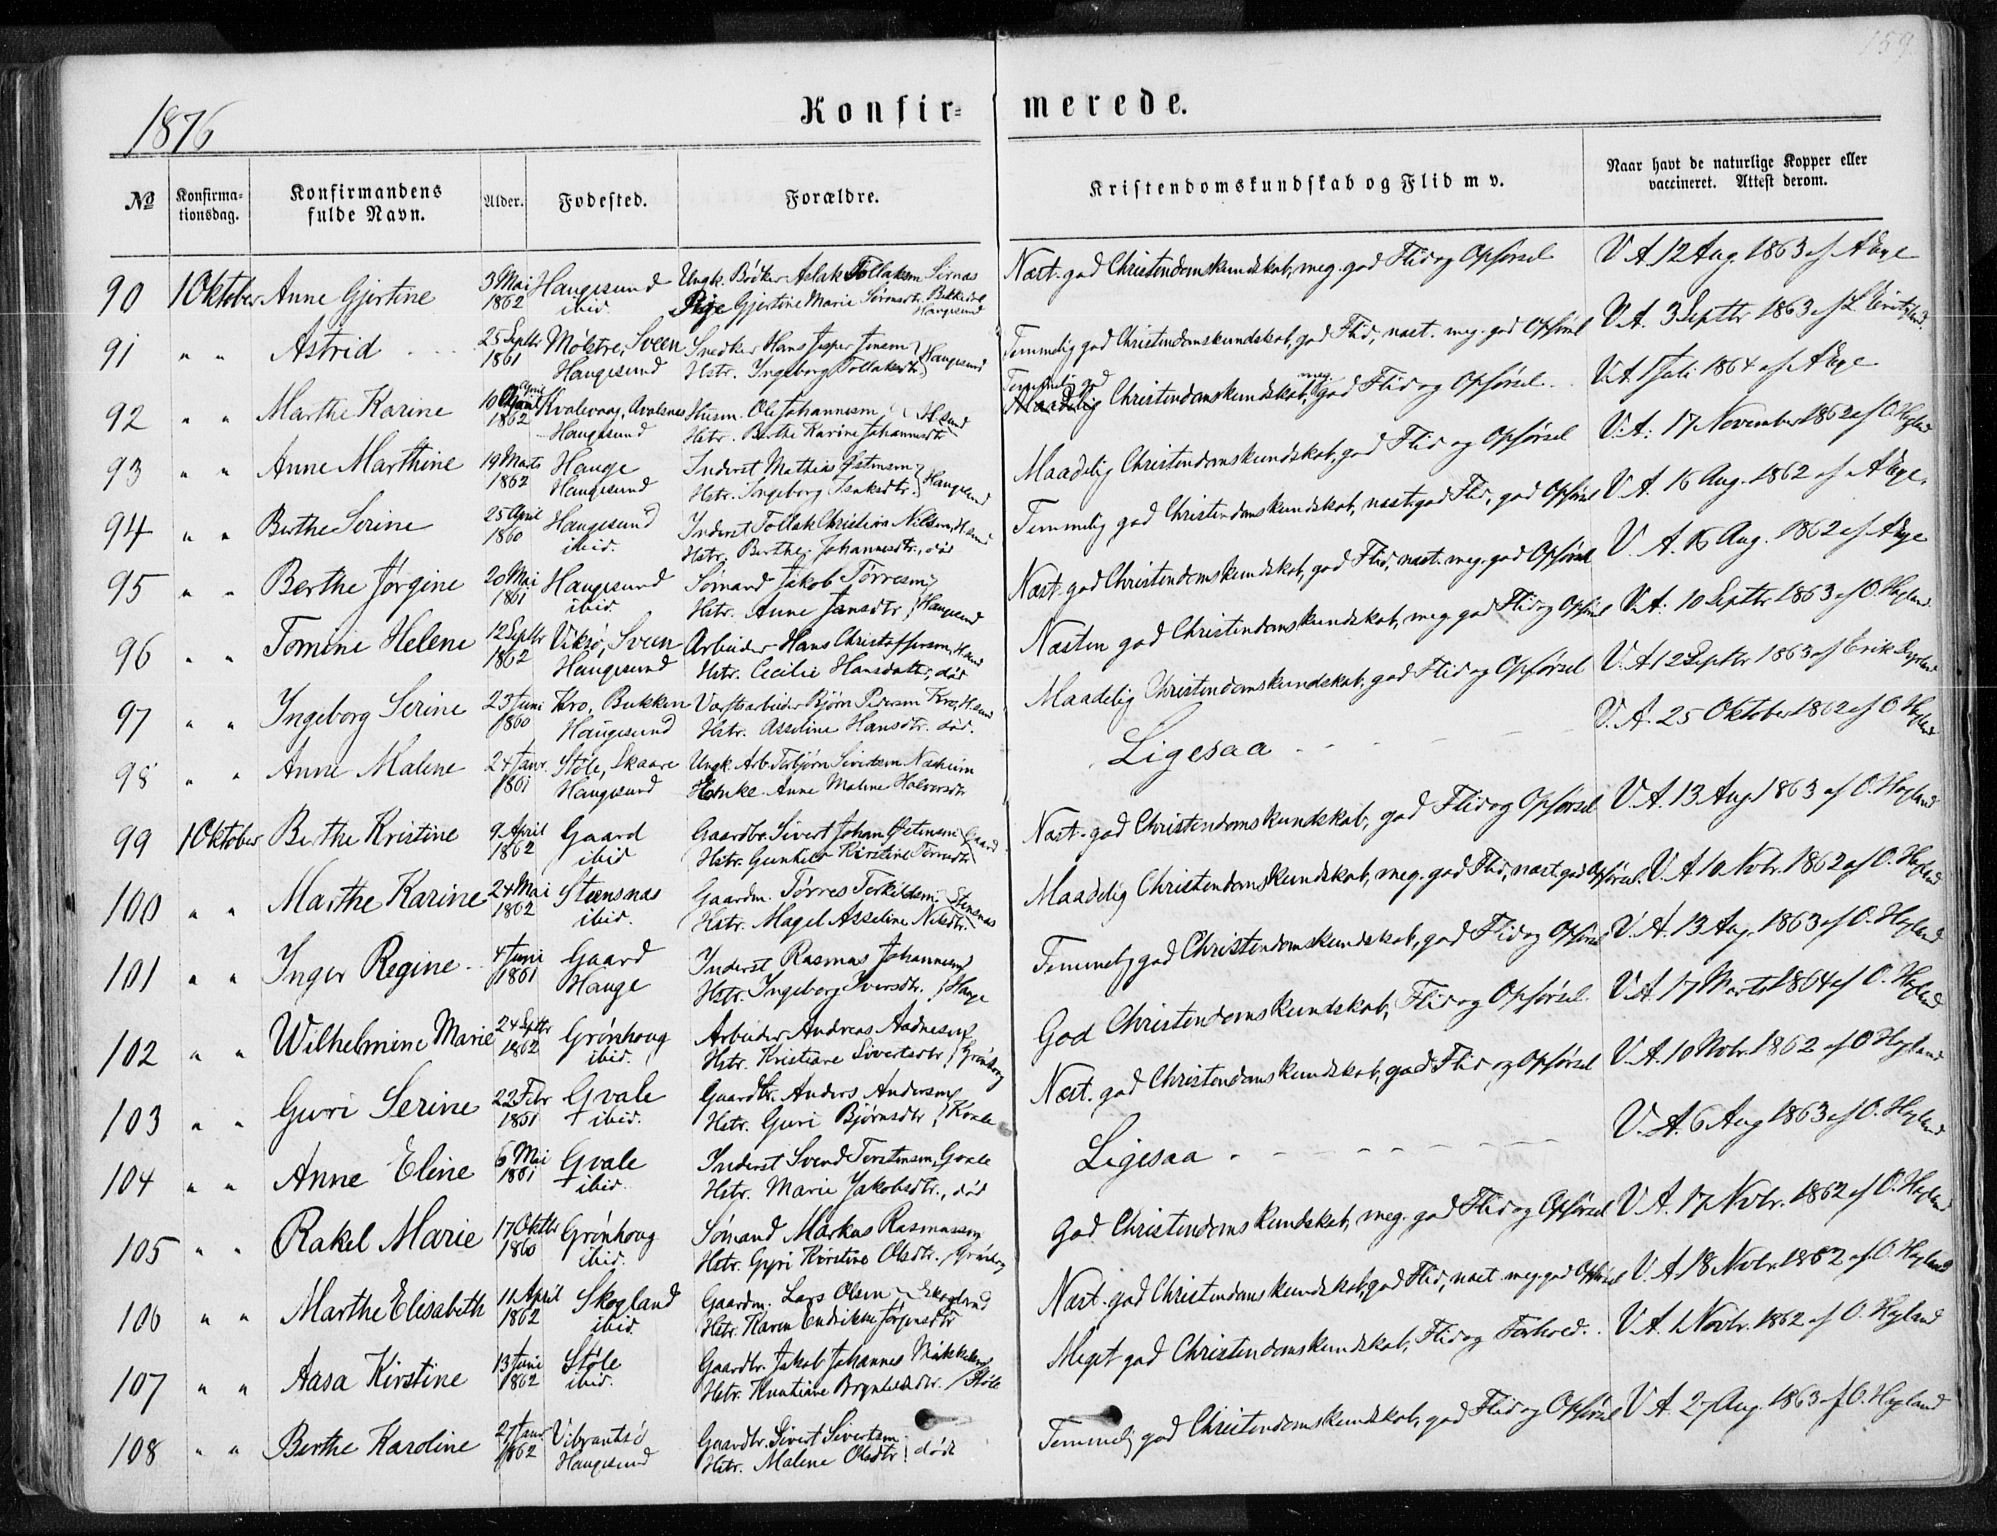 159.
1876
Konfir- merede.
№ Konfirma-tionsdag. Konfirmandens fulde Navn. Alder. Fødested. Forældre. Kristendomskundskab og Flid m v. Naar havt de naturlige Kopper eller vaccineret. Attest derom.
90 1 Oktober Anne Gjertine 3 Mai Haugesund Ungk. Bødker Aslak Tollaksen Næst. god Christendomskundskab, meg. god Flid og Opførsel V. A. 12 Aug. 1863 af
1862 ibid. Pige Gjertine Marie Haugesund
91 " " Astrid 25 Septbr Mølstre, Sveen Snedker Hans Jesper Jensen Temmelig god Christendomskundskab, god Flid, næst. meg. god Opførsel V. A. 3 Septbr 1863 af
1861 Haugesund Hstr. Ingeborg Tollaksdtr. Haugesund
92 " " Marthe Karine 10 April Kvalevaag, Avalsnes Husm. Ole Johannesen Temmelig god Christendomskundskab, meg god Flid og Opførsel V. A. 1 Juli 1864 af
1862 Haugesund Hstr. Berthe Karine Johannesdtr H.sund
93 " " Anne Marthine 19 Marts Hauge Inderst Mathias Østensen Maadelig Christendomskundskab, god Flid og Opførsel V. A. 17 November 1862 af O. Hegland
1862 Haugesund Hstr. Ingeborg Isaksdtr. Haugesund
94 " " Berthe Serine 25 April Haugesund Inderst Tollak Christian Nilsen, H.sund Temmelig god Christendomskundskab, næst. god Flid, god Opførsel V. A. 16 Aug. 1862 af
1860 ibid. Hstr. Berthe Johannesdtr., død
95 " " Berthe Jørgine 20 Mai Haugesund Sømand Jakob Tørresen Næst. god Christendomskundskab, god Flid, næst. meg. god Opførsel V. A. 16 Aug. 1862 af
1861 ibid. Hstr. Anne Jansdtr. Haugesund
96 " " Tomine Helene 12 Septbr Vikse, Sveen Arbeider Hans Christoffersen, H.sund Næsten god Christendomskundskab, meg. god Flid og Opførsel V. A. 10 Septbr 1863 af O. Hegland
1862 Haugesund Hstr. Cecilie Hansdatter, død
97 " " Ingeborg Serine 23 Juni Kro, Bukken Værftsarbeider Bjørn Pedersen Kro, H.sund Maadelig Christendomskundskab, god Flid og Opførsel V. A. 12 Septbr 1863 af Erik
1860 Haugesund Hstr. Asseline Hansdtr. død.
98 " " Anne Malene 24 Janr. Støle, Skaare Ungk. Arb. Torbjørn Sivertsen Ligesaa V. A. 25 Oktober 1862 af O. Hegland
1861 Haugesund Enke Anne Malene Halvorsdtr
99 1 Oktober Berthe Kristine 9 April Gaard Gaardbr. Sivert Johan Østensen Næst. god Christendomskundskab, god Flid og Opførsel V. A. 13 Aug 1863 af O. Hegland
1862 ibid Hstr. Gunhild Kirstine Gaard
100 " " Marthe Karine 24 Mai Steensnæs Gaardm. Tørres Torkildsen Maadelig Christendomskundskab, meg. god Flid, næst. god Opførsel. V. A. 10 Novbr. 1862 af O. Hegland
1862 ibid. Hstr. Magel Asseline Nilsdtr. Stensnæs
101 " " Inger Regine 4 Juni Gaard Inderst Rasmus Johannesen Temmelig god Christendomskundskab, god Flid og Opførsel V. A. 13 Aug. 1863 af O. Hegland
1861 Hauge Hstr. Ingeborg Iversdtr. Hauge
102 " " Wilhelmine Marie 24 Septbr Grønhoug Arbeider Andreas Aadnesen God Christendomskundskab, Flid og Opførsel. V. A. 17 Marts 1864 af O. Hegland
1862 ibid. Hstr. Kristiane Sivertsdtr Grønhoug
103 " " Guri Serine 22 Febr Gvale Gaardbr. Anders Andersen Næst. god Christendomskundskab, god Flid og Opførsel V. A. 10 Novbr. 1862 af O Hegland
1861 ibid. Hstr. Guri Bjørnsdtr, Kvale
104 " " Anne Eline 6 Mai Gvale Inderst Svend Torstensen, Gvale Ligesaa V. A. 6 Aug 1863 af O. Hegland
1861 ibid. Hstr. Marie Jakobsdtr., død
105 " " Rakel Marie 17 Oktbr Grønhoug Sømand Markus Rasmussen God Christendomskundskab, meg. god Flid og Opførsel V. A. 17 Novbr. 1862 af O. Hegland
1860 ibid. Hstr. Gyri Kirstine Olsdtr. Grønhoug
106 " " Marthe Elisabeth 11 April Skogland Gaardm. Lars Olsen Skogland Næst. god Christendomskundskab, god Flid, næst. meg. god Opførsel V. A. 18 Novbr 1862 af O. Hegland
1862 ibid. Hstr. Karen Endrikke Jørgensdtr
107 " " Aasa Kirstine 13 Juni Støle Gaardbr. Jakob Johannes Mikkelsen Meget god Christendomskundskab, Flid og Forhold. V. A. 1 Novbr. 1862 af O. Hegland
1862 ibid. Hstr. Kristiane Brynhildsdtr. Støle
108 " " Berthe Karoline 27 Janr. Vibrantsø Gaardbr. Sivert Sivertsen Temmelig god Christendomskundskab, god Flid og Opførsel V. A. 27 Aug. 1863 af O. Hegland
1862 Haugesund Hstr. Malene Olsdtr. døde